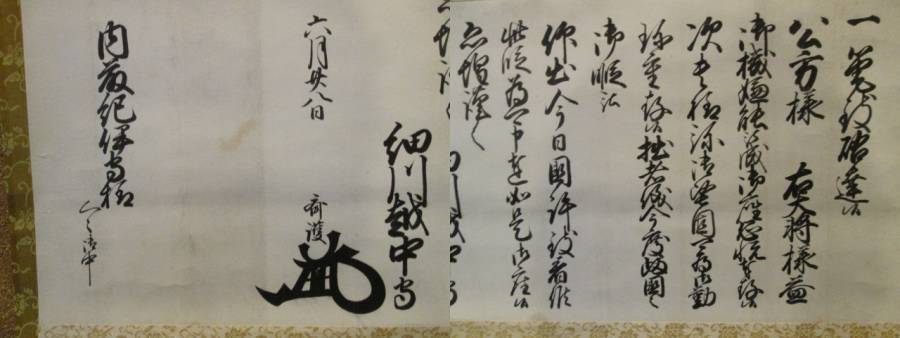 一筆致啓達候
公方様 右大将様益
御機嫌能被成御座恐悦奉存候
御堅固 御勤
珍重存候拙者儀今度帰国之
御暇被
仰出今日国許致着
此段為可申達如是御座候
恐惶謹言
細川越中守
齊護
六月廿八日
内藤紀伊守様
人々御中